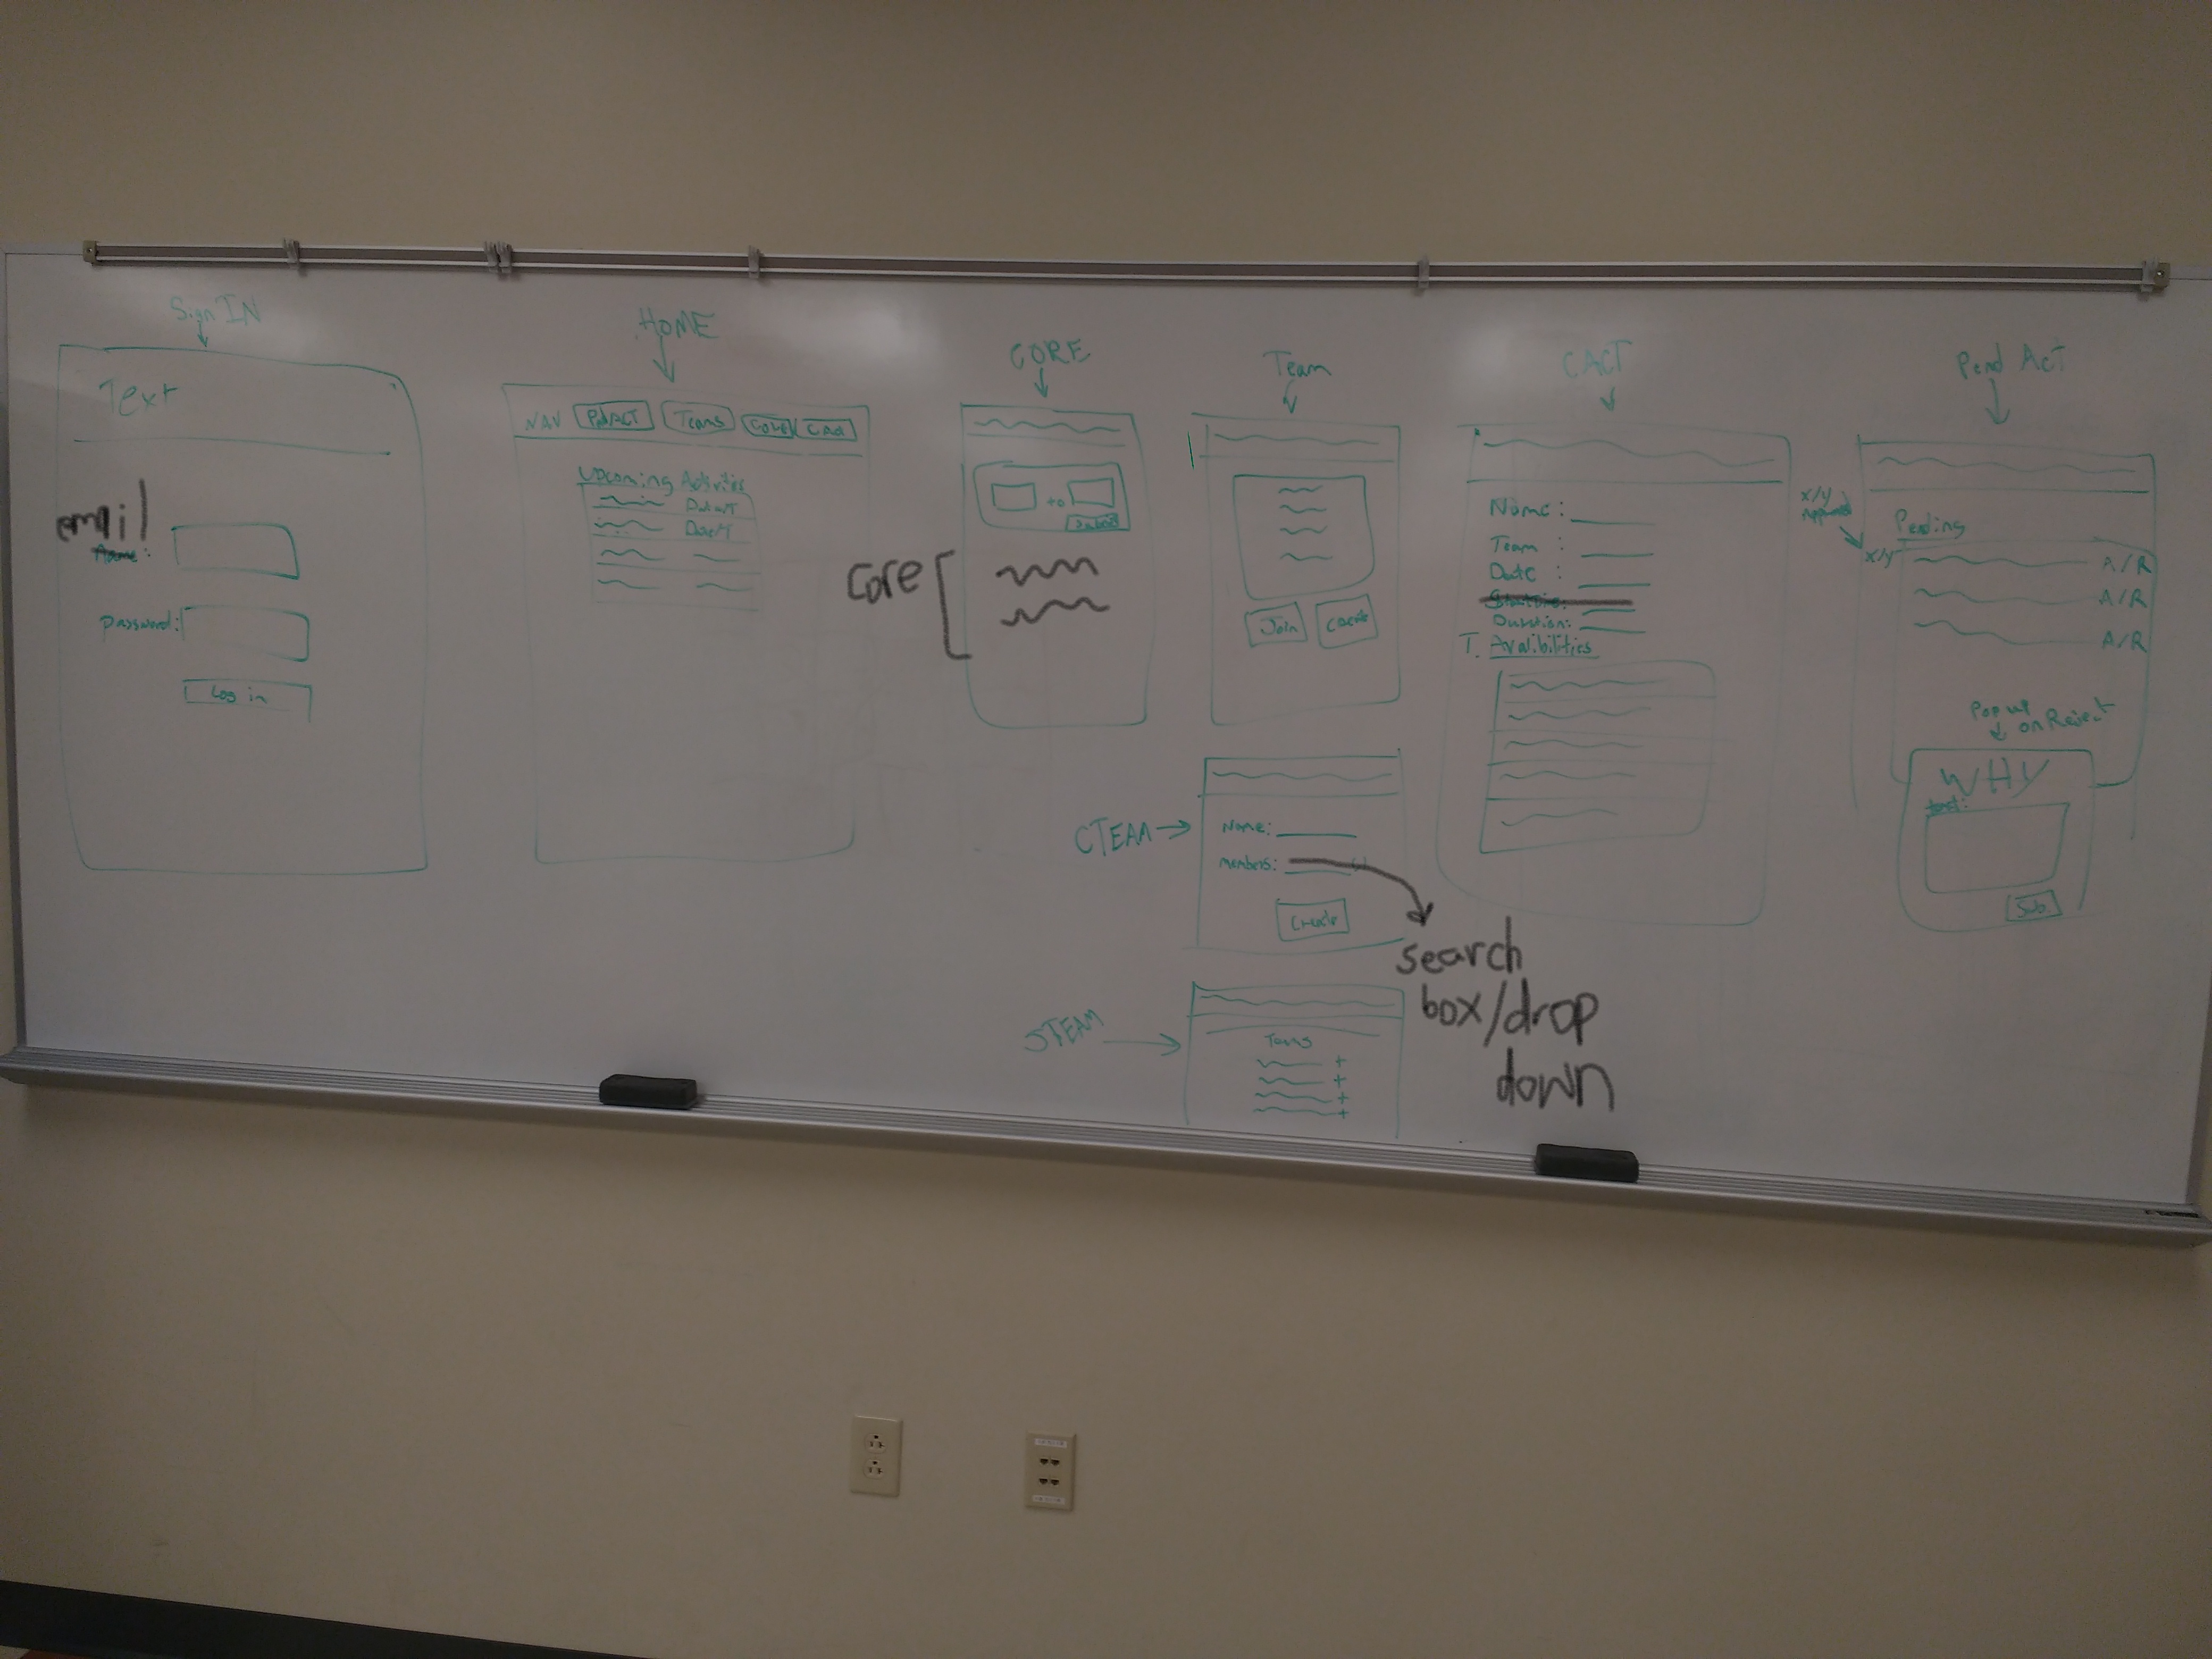 Sign IN
Text
email
Name:
Password:
Log in
HOME
NAV PndACT Teams CORE CAct
Upcoming Activities
Date/T
Date/T
CORE
to
Submit
core
Team
Join Create
CTEAM
Name:
members:
Create
search
box/drop
down
STEAM
Teams
+
+
+
+
CACT
Name:
Team :
Date :
Duration:
T. Avalibilities
Pend Act
x/y
Approved
Pending
x/y A/R
A/R
A/R
Pop up
on Reject
WHY
text:
Sub.